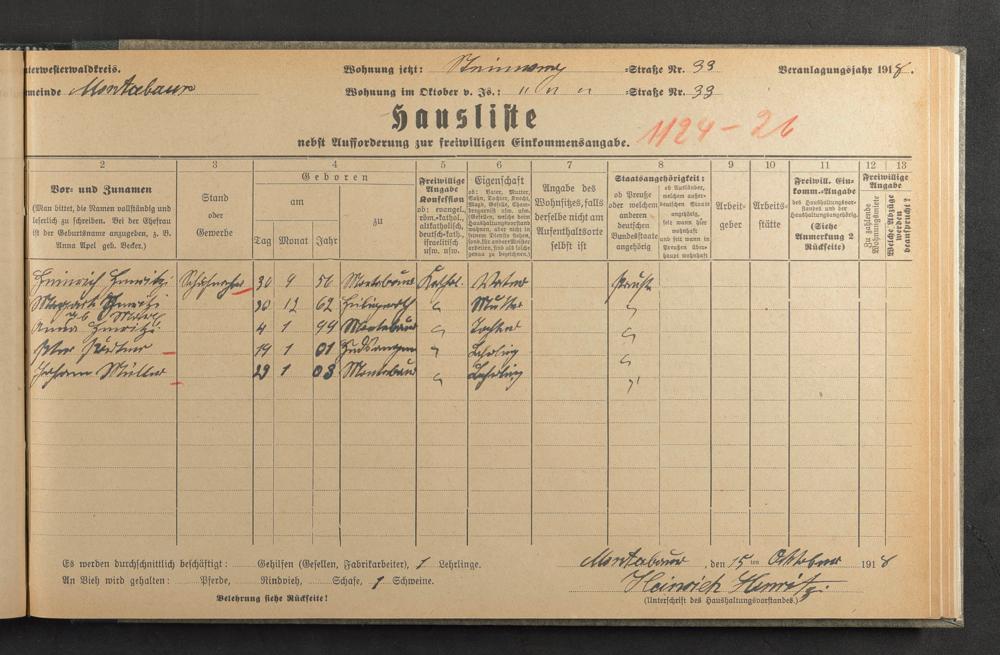 nterwesterwaldkreis. Wohnung jetzt: =Straße Nr. 33 Veranlagungsjahr 1918.
meinde Montabaur Wohnung im Oktober v. Js.: " " " =Straße Nr. 33
Hausliste 1124-26
nebst Aufforderung zur freiwilligen Einkommensangabe.
2 3 4 5 6 7 8 9 10 11 12 13
Vor= und Zunamen
(Man bittet, die Namen vollständig und
leserlich zu schreiben. Bei der Ehefrau
ist der Geburtsname anzugeben, z. B.
Anna Apel geb. Becker.)
Stand
oder
Gewerbe
Geboren
am
Tag Monat Jahr
zu
Freiwillige
Angabe
Konfession
ob: evangel.,
röm.=kathol.,
altkatholisch,
deutsch=kath.,
israelitisch
usw. usw.
Eigenschaft
ob: Vater, Mutter,
Sohn, Tochter, Knecht,
Magd, Geselle, Cham=
bergarnist usw. usw.
Angabe des
Wohnsitzes, falls
derselbe nicht am
Aufenthaltsorte
selbst ist
Staatsangehörigkeit:
ob Preuße
oder welchem
anderen
deutschen
Bundesstaate
angehörig
ob Ausländer,
welchem außer=
deutschen Staate
angehörig,
seit wann hier
wohnhaft
und seit wann in
Preußen über=
haupt wohnhaft
Arbeit=
geber
Arbeits=
stätte
Freiwill. Ein=
komm.=Angabe
des Haushaltungsvor=
standes und der
Haushaltungsangehörig.
(Siehe
Anmerkung 2
Rückseite)
Freiwillige
Angabe
Zu zahlende
Wohnungsmiete
Welche Abzüge
werden
beansprucht?
Heinrich 30 9 56 Montabaur Kathol. Vater Preuße
30 12 62 " Mutter "
Anna 4 1 99 Montabaur " Tochter "
Peter 19 1 01 " Lehrling "
Johann Müller 29 1 03 Montabaur " Lehrling "
Es werden durchschnittlich beschäftigt: Gehilfen (Gesellen, Fabrikarbeiter), 1 Lehrlinge.
An Vieh wird gehalten: Pferde, Rindvieh, Schafe, 1 Schweine.
Belehrung siehe Rückseite!
Montabaur, den 15ten Oktober 1918
Heinrich
(Unterschrift des Haushaltungsvorstandes.)